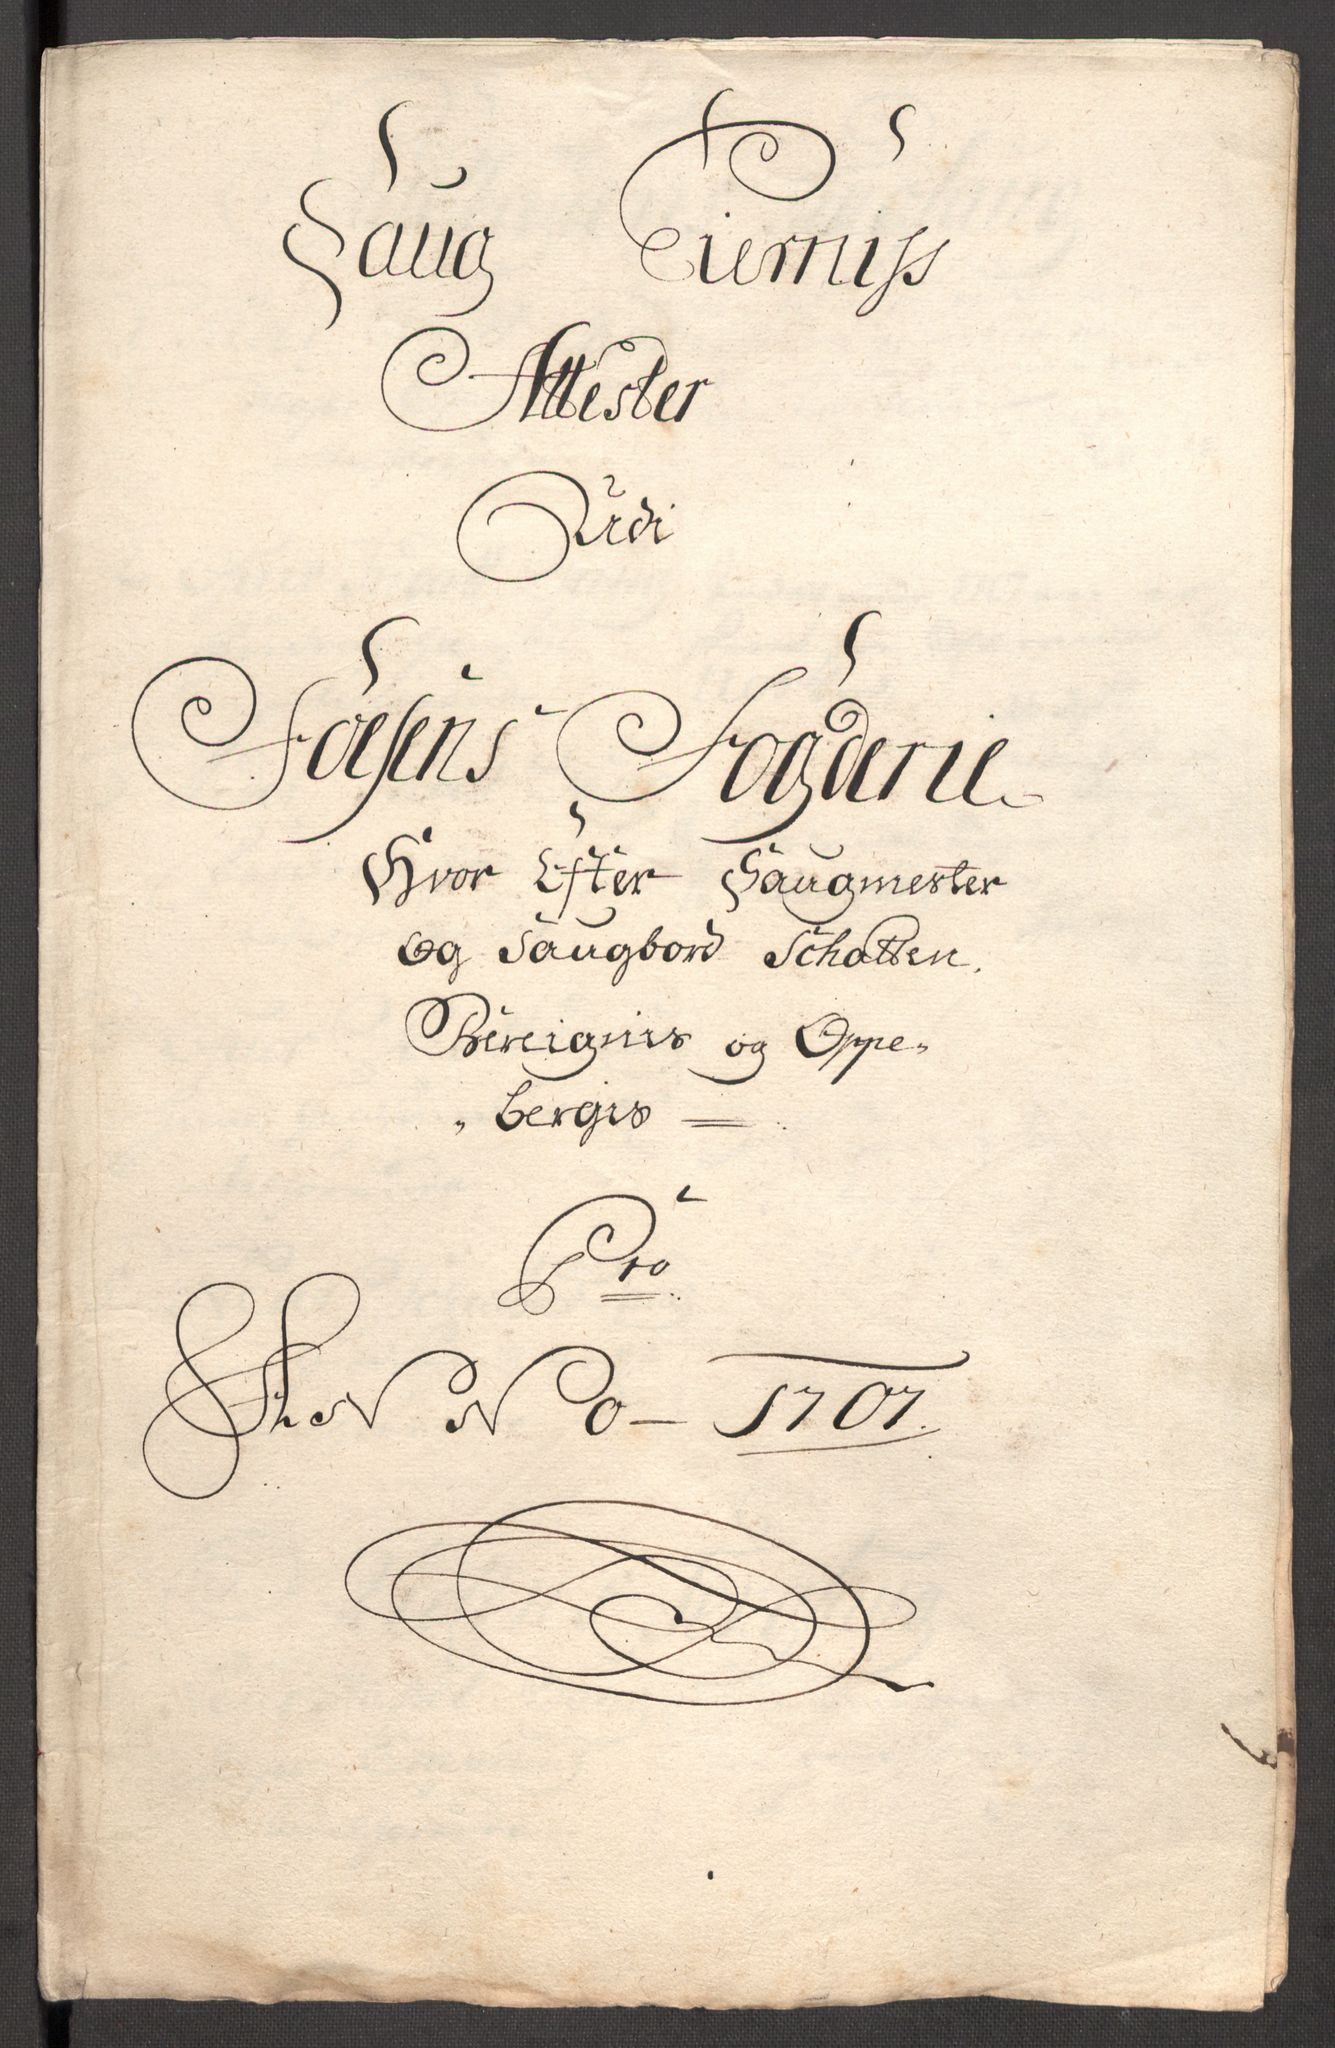 Saug Eierniss
Attester
Udi
Foesens Fogderie
Hvor Efter Saugmester
og Saugbord Schatten
Bereignis og Oppe„
„bergis =
Pro
Anno – 1707.